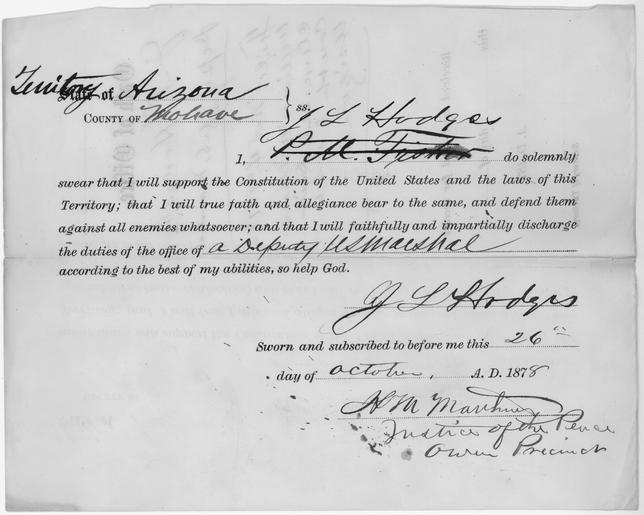 Territory
State of Arizona
County of Mohave } ss.
J L Hodges
I, P. M. Fisher do solemnly
swear that I will support the Constitution of the United States and the laws of this
Territory; that I will true faith and allegiance bear to the same, and defend them
against all enemies whatsoever; and that I will faithfully and impartially discharge
the duties of the office of a Deputy US Marshal
according to the best of my abilities, so help God.
J L Hodges
Sworn and subscribed to before me this 26th
day of October, A. D. 1878
M
Justice of the Peace
Owen Precinct